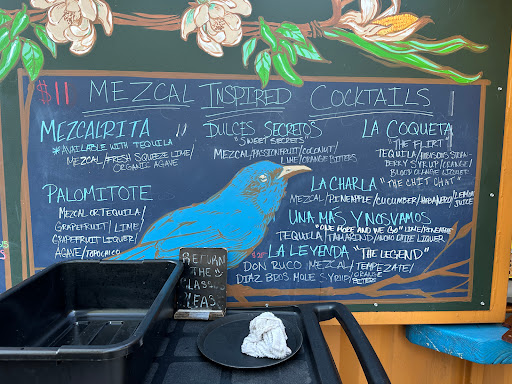 $11 MEZCAL INSPIRED COCKTAILS
MEZCALRITA
*AVAILABLE WITH TEQUILA
MEZCAL/FRESH SQUEEZE LIME/
ORGANIC AGAVE
PALOMITOTE
MEZCAL OR TEQUILA/
GRAPEFRUIT/LIME/
GRAPEFRUIT LIQUER/
AGAVE/TOPOCHICO
DULCES SECRETOS
"SWEET SECRETS"
MEZCAL/PASSIONFRUIT/COCONUT/
LIME/ORANGE BITTERS
LA COQUETA
"THE FLIRT"
TEQUILA/
BERRY SYRUP/ORANGE/
BLOOD ORANGE LIQUER
LA CHARLA "THE CHIT CHAT"
MEZCAL/PINEAPPLE/CUCUMBER/HABANERO/LEMON
JUICE
UNA MAS Y NOS VAMOS
"ONE MORE AND WE GO" LIME/PINEAPPLE
TEQUILA/TAMARIND/ LIQUER
LA LEYENDA "THE LEGEND"
DON RUCO MEZCAL/TEPEZATE/
DIAZ BROS. MOLE SYRUP/ORANGE
BITTERS
RETURN
THE
GLASS
YEAS